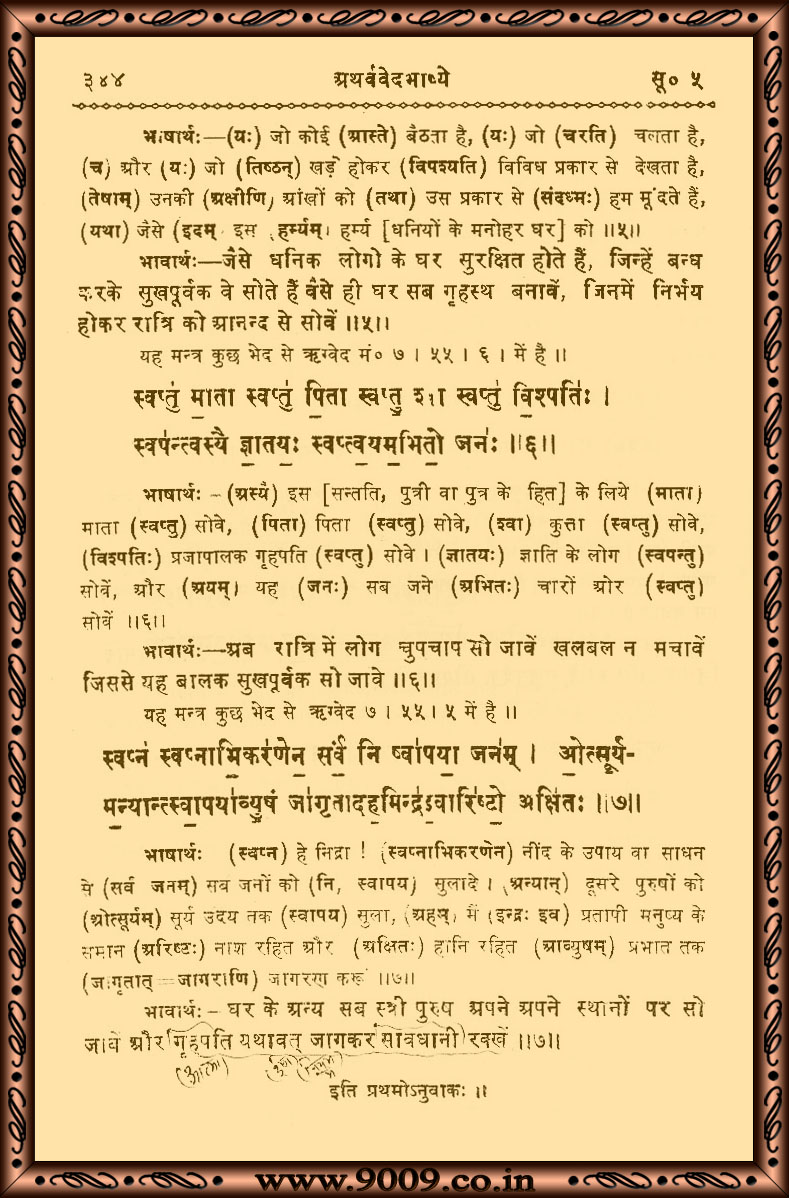 ३४४ अथर्ववेदभाष्ये सू० ५
भाषार्थः—(यः) जो कोई (आस्ते) बैठता है, (यः) जो (चरति) चलता है,
(च) और (यः) जो (तिष्ठन्) खड़े होकर (विपश्यति) विविध प्रकार से देखता है,
(तेषाम्) उनकी (अक्षीणि) आंखों को (तथा) उस प्रकार से (संदध्मः) हम मूंदते हैं,
(यथा) जैसे (इदम् इस हर्म्यम्। हर्म्य [धनियों के मनोहर घर] को ॥५॥
भावार्थः—जैसे धनिक लोगो के घर सुरक्षित होते हैं, जिन्हें बन्ध
करके सुखपूर्वक वे सोते हैं वैसे ही घर सब गृहस्थ बनावें, जिनमें निर्भय
होकर रात्रि को आनन्द से सोवें ॥५॥
यह मन्त्र कुछ भेद से ऋग्वेद मं० ७ । ५५ । ६ । में है ॥
स्वप्तु॑ मा॒ता स्वप्तु॑ पि॒ता स्वप्तु॒ श्वा स्वप्तु॑ वि॒श्पतिः॑ ।
स्वप॑न्त्वस्यै ज्ञा॒तयः॒ स्वप्त्व॒यम॒भितो॒ जनः॑ ॥६॥
भाषार्थः – (अस्यै) इस [सन्तति, पुत्री वा पुत्र के हित] के लिये (माता)
माता (स्वप्तु) सोवे, (पिता) पिता (स्वप्तु) सोवे, (श्वा) कुत्ता (स्वप्तु) सोवे,
(विश्पतिः) प्रजापालक गृहपति (स्वप्तु) सोवे । (ज्ञातयः) ज्ञाति के लोग (स्वपन्तु)
सोवें, और (अयम्) यह (जनः) सब जने (अभितः) चारों ओर (स्वप्तु)
सोवें ॥६॥
भावार्थः—अब रात्रि में लोग चुपचाप सो जावें खलबल न मचावें
जिससे यह बालक सुखपूर्वक सो जावे ॥६॥
यह मन्त्र कुछ भेद से ऋग्वेद ७ । ५५ । ५ में है ॥
स्वप्न॑ स्वप्नाभि॒कर॑णेन॒ सर्वं॒ नि ष्वा॑पया॒ जन॑म् । ओ॒त्सू॒र्य-
म॒न्यान्त्स्वा॒पया॑व्यु॒षं जा॑गृताद॒हमिन्द्र॑ऽइ॒वारि॑ष्टो॒ अक्षि॑तः ॥७॥
भाषार्थः (स्वप्न) हे निद्रा ! (स्वप्नाभिकरणेन) नींद के उपाय वा साधन
से (सर्वं जनम्) सब जनों को (नि, स्वापय) सुलादे । (अन्यान्) दूसरे पुरुषों को
(ओत्सूर्यम्) सूर्य उदय तक (स्वापय) सुला, (अहम्) मैं (इन्द्रः इव) प्रतापी मनुष्य के
समान (अरिष्टः) नाश रहित और (अक्षितः) हानि रहित (आव्युषम्) प्रभात तक
(जागृतात् = जागराणि) जागरण करूं ॥७॥
भावार्थः – घर के अन्य सब स्त्री पुरुष अपने अपने स्थानों पर सो
जावें और गृहपति यथावत् जागकर सावधानी रक्खें ॥७॥
(आत्मा)
इति प्रथमोऽनुवाकः ॥
www.9009.co.in